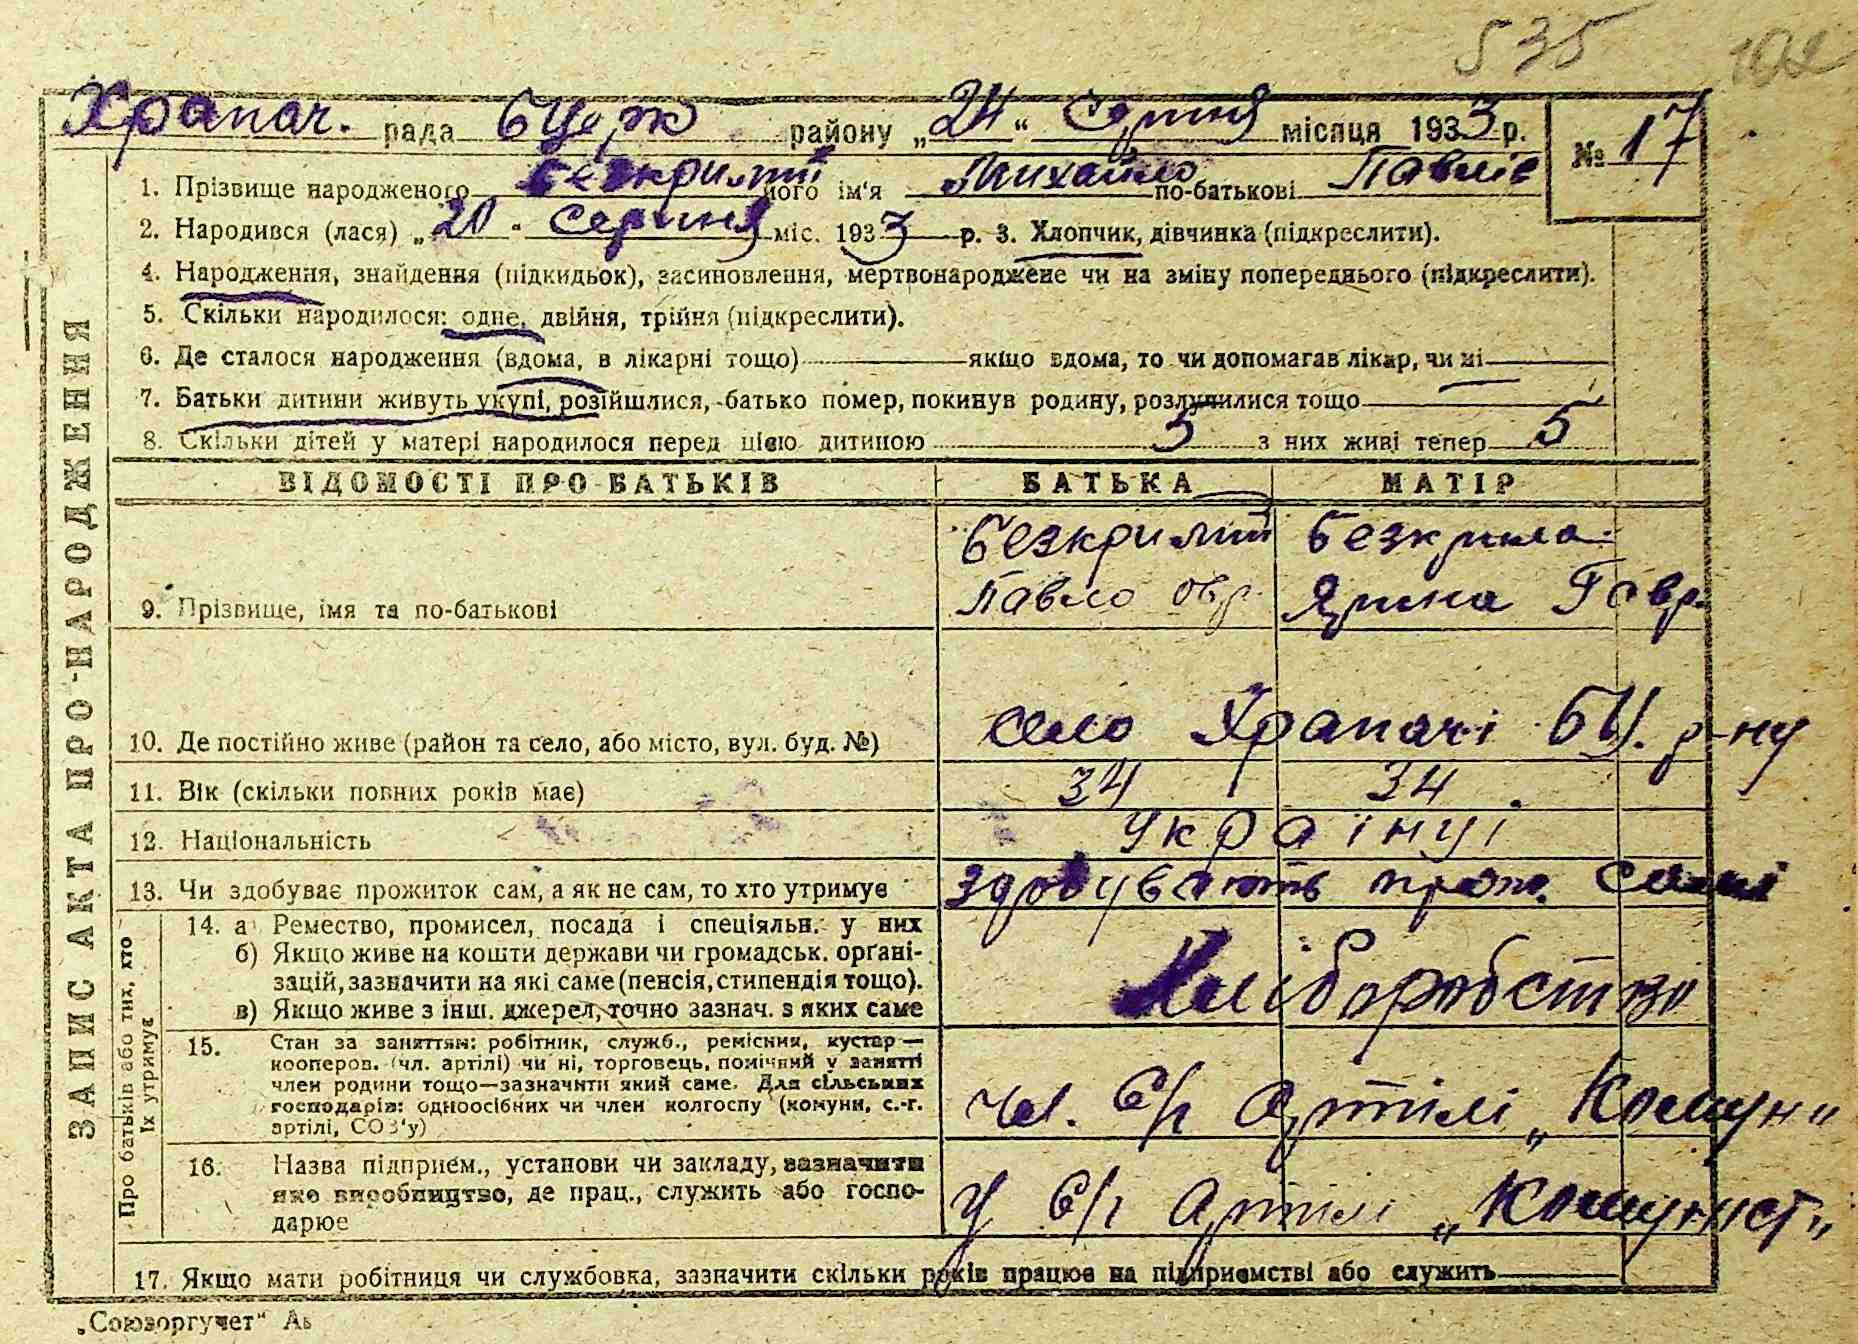 535 102
Храпач. рада БЦерк району „24“ Серпня місяця 1933 р. № 17
1. Прізвище народженого Безкрилий його ім'я Михайло по-батькові Павлів
2. Народився (лася) „20" серпня міс. 1933 р. 3. Хлопчик, дівчинка (підкреслити).
4. Народження, знайдення (підкидьок), засиновлення, мертвонароджене чи на зміну попереднього (підкреслити).
5. Скільки народилося: одне, двійня, трійня (підкреслити).
6. Де сталося народження (вдома, в лікарні тощо) якщо вдома, то чи допомагав лікар, чи ні
7. Батьки дитини живуть укупі, розійшлися, батько помер, покинув родину, розлучилися тощо
8. Скільки дітей у матері народилося перед цією дитиною 5 з них живі тепер 5
ВІДОМОСТІ ПРО БАТЬКІВ БАТЬКА МАТІР
Безкрилий Безкрила
9. Прізвище, імя та по-батькові Павло Явр. Ярина Гавр.
10. Де постійно живе (район та село, або місто, вул. буд. №) село Храпачі БЦ. р-ну
11. Вік (скільки повних років має) 34 34
12. Національність Українці
13. Чи здобуває прожиток сам, а як не сам, то хто утримує здобувають прож. самі
14. а) Ремество, промисел, посада і спеціяльн. у них
б) Якщо живе на кошти держави чи громадськ. орґані-
зацій, зазначити на які саме (пенсія, стипендія тощо).
в) Якщо живе з інш. джерел, точно зазнач. з яких саме
Хліборобство
15. Стан за заняттям: робітник, служб., ремісник, кустар—
кооперов. (чл. артілі) чи ні, торговець, помічний у занятті
член родини тощо—зазначити який саме. Для сільських
господарів: одноосібних чи член колгоспу (комуни, с.-г.
артілі, СОЗ'у)
чл. С/г артілі „Комун"
16. Назва підприєм., установи чи закладу, зазначити
яке виробництво, де прац., служить або госпо-
дарює
у С/г артілі „Комуніст"
17. Якщо мати робітниця чи службовка, зазначити скільки років працює на підприємстві або служить
ЗАПИС АКТА ПРО НАРОДЖЕННЯ
Про батьків або тих, хто
їх утримує
„Союзоргучет"